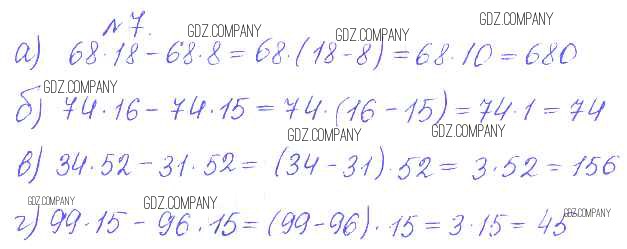 № 7.
GDZ.COMPANY GDZ.COMPANY GDZ.COMPANY
а) 68·18 - 68·8 = 68·(18-8) = 68·10 = 680
GDZ.COMPANY
б) 74·16 - 74·15 = 74·(16-15) = 74·1 = 74
GDZ.COMPANY GDZ.COMPANY
в) 34·52 - 31·52 = (34-31)·52 = 3·52 = 156
GDZ.COMPANY GDZ.COMPANY GDZ.COMPANY
г) 99·15 - 96·15 = (99-96)·15 = 3·15 = 45